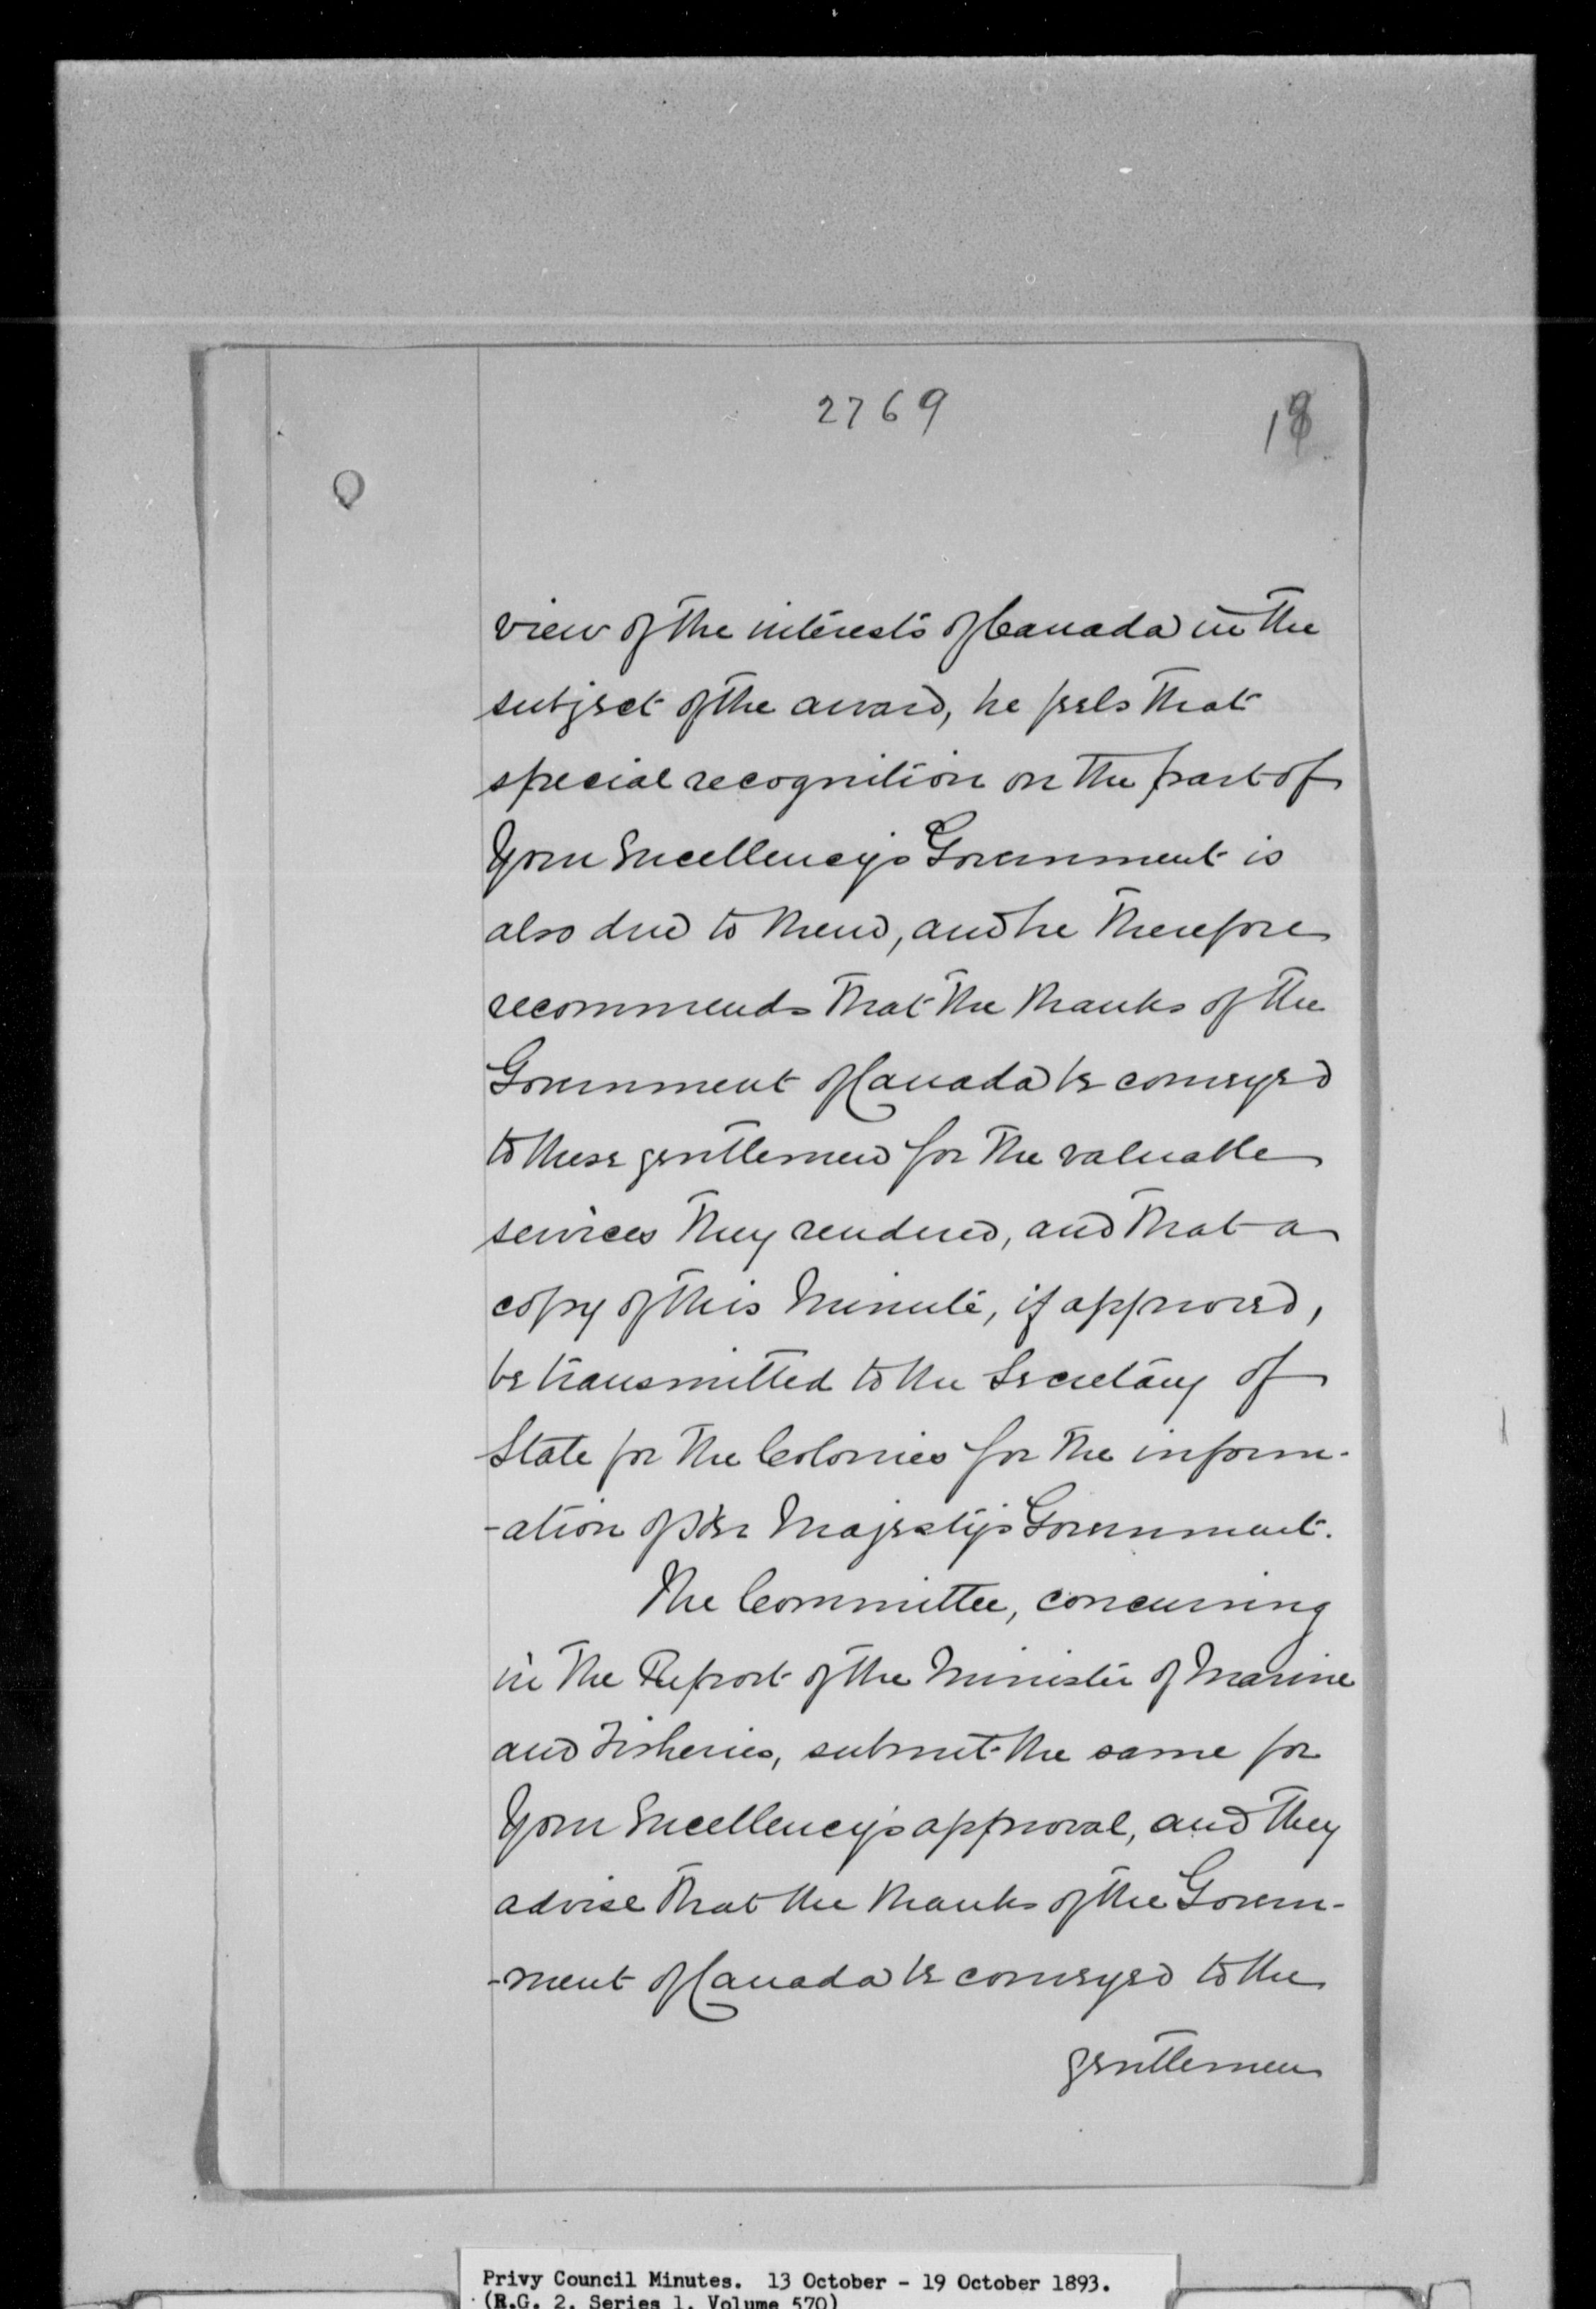 2769
18
view of the interests of Canada in the
subject of the award, he feels that
special recognition on the part of
Your Excellency's Government is
also due to them, and he therefore
recommends that the thanks of the
Government of Canada be conveyed
to these gentlemen for the valuable
services they rendered, and that a
copy of this Minute, if approved,
be transmitted to the Secretary of
State for the Colonies for the inform-
-ation of Her Majesty's Government.
The Committee, concurring
in the Report of the Minister of Marine
and Fisheries, submit the same for
Your Excellency's approval, and they
advise that the thanks of the Govern-
-ment of Canada be conveyed to the
gentlemen
Privy Council Minutes. 13 October - 19 October 1893.
(R.G. 2, Series 1, Volume 570)